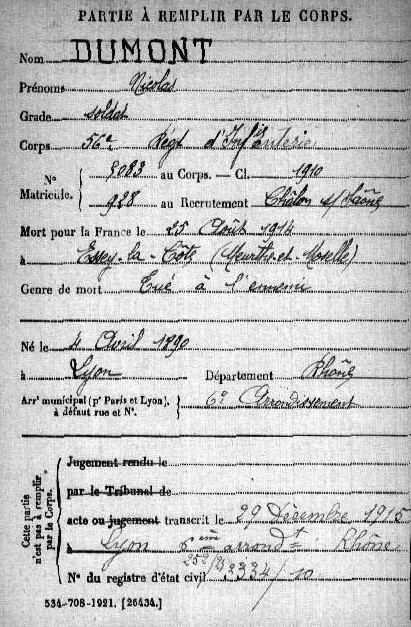 PARTIE À REMPLIR PAR LE CORPS.
Nom DUMONT
Prénoms Nicolas
Grade soldat
Corps 56e Régt d'Infanterie
N° Matricule. { 5083 au Corps. — Cl. 1910
928 au Recrutement Châlon s/ Saône
Mort pour la France le 25 Août 1914
à Essey-la-Côte (Meurthe-et-Moselle)
Genre de mort Tué à l'ennemi
Né le 4 Avril 1890
à Lyon Département Rhône
Arrt municipal (pr Paris et Lyon), à défaut rue et N°. } 6e Arrondissement
Cette partie n'est pas à remplir par le Corps.
Jugement rendu le
par le Tribunal de
acte ou jugement transcrit le 29 Décembre 1915
à Lyon 6ème arrondt Rhône
N° du registre d'état civil 2334/10
534-708-1921. [26434.]